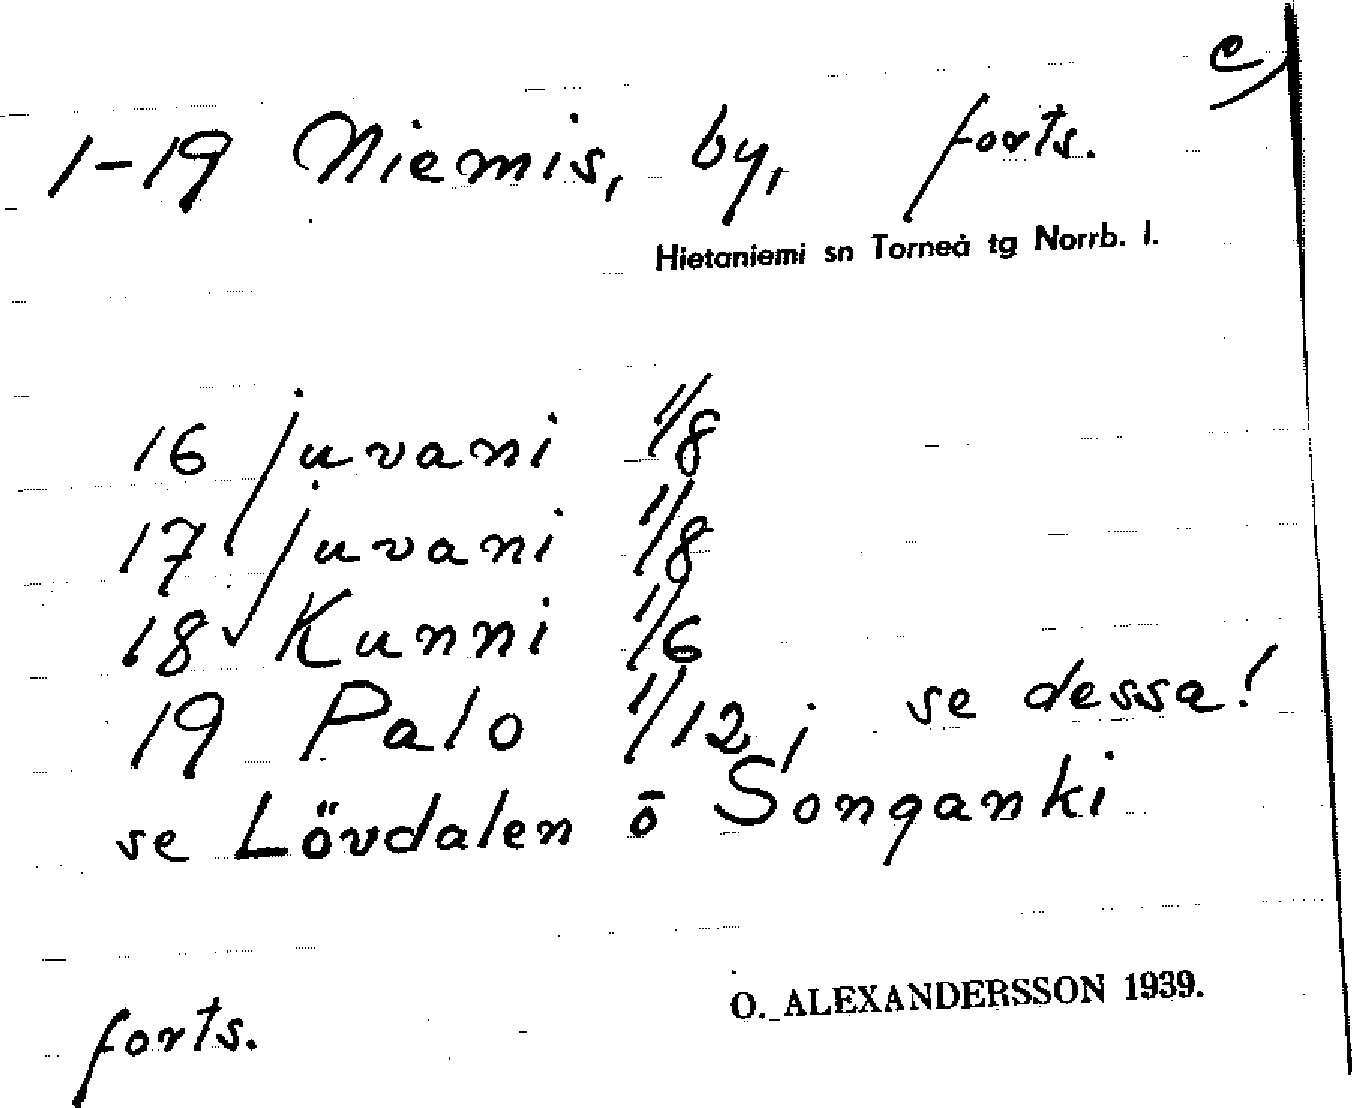 c)
1-19 Niemis, by, forts.
Hietaniemi sn Torneå tg Norrb. l.
16 Juvani 1/8
17 Juvani 1/8
18 Kunni 1/6
19 Palo 1/12; se dessa!
se Lövdalen o Songanki
forts.
O. ALEXANDERSSON 1939.